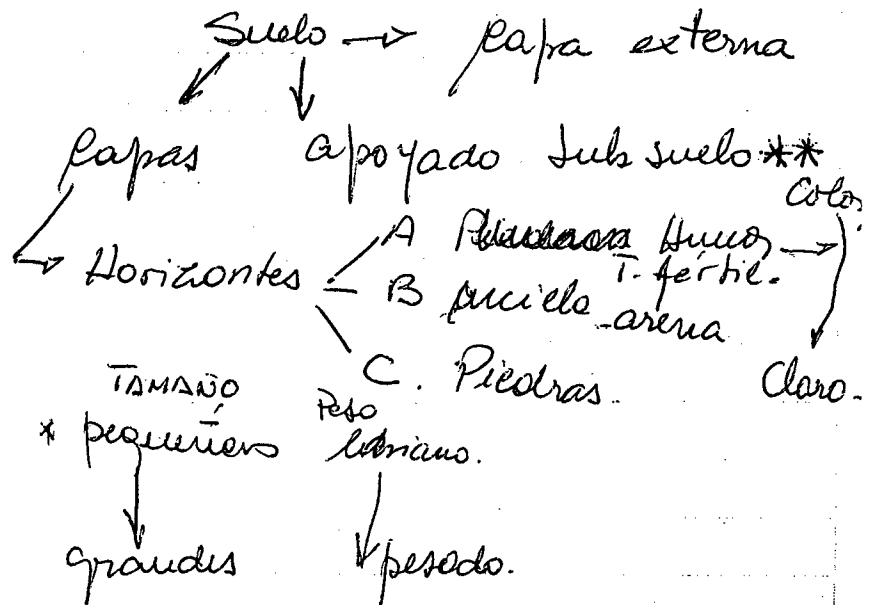 Suelo → Capa externa
Capas apoyado Subsuelo **
Color
Horizontes A Humus →
T. fértil.
B arcilla - arena
C. Piedras. Claro.
TAMAÑO Peso
* pequeños liviano.
grandes pesado.